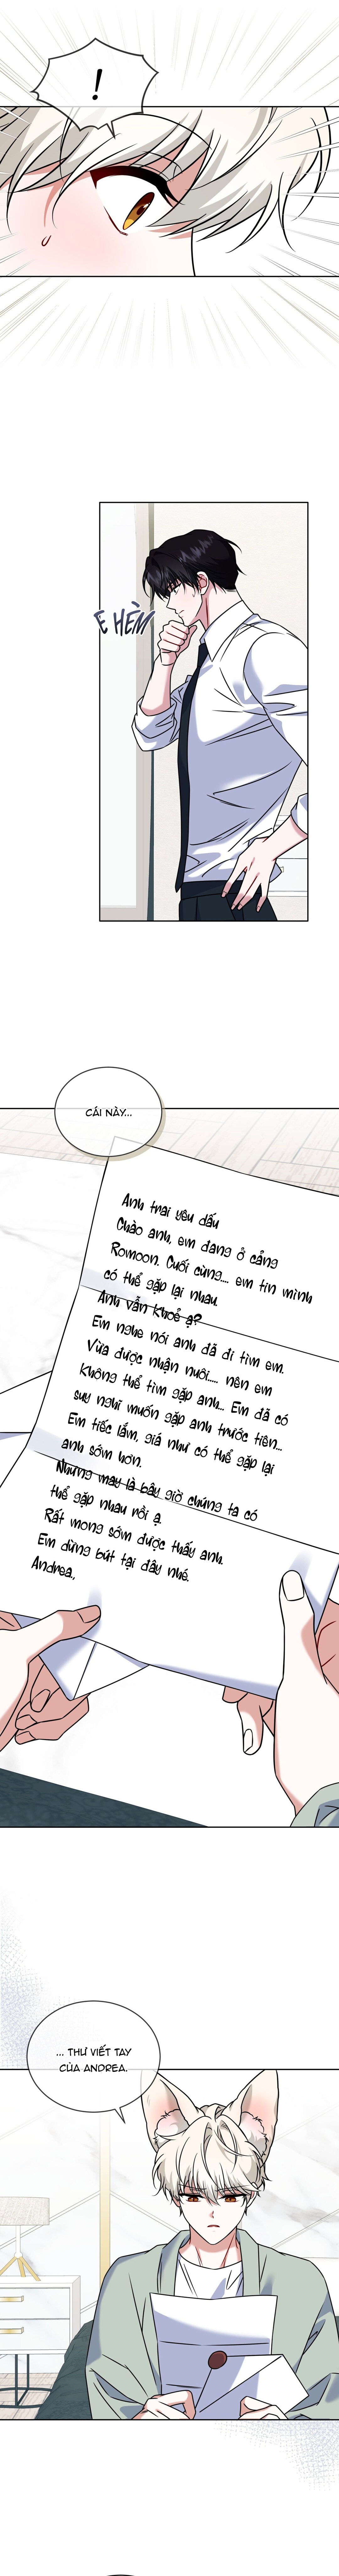 !
E HÈN
CÁI NÀY...
Anh trai yêu dấu
Chào anh, em đang ở cảng
Romoon. Cuối cùng... em tin mình
có thể gặp lại nhau.
Anh vẫn khoẻ ạ?
Em nghe nói anh đã đi tìm em.
Vừa được nhận nuôi.... nên em
không thể tìm gặp anh... Em đã có
suy nghĩ muốn gặp anh trước tiên...
Em tiếc lắm, giá như có thể gặp lại
anh sớm hơn.
Nhưng may là bây giờ chúng ta có
thể gặp nhau rồi ạ.
Rất mong sớm được thấy anh.
Em dừng bút tại đây nhé.
Andrea,
... THƯ VIẾT TAY
CỦA ANDREA.